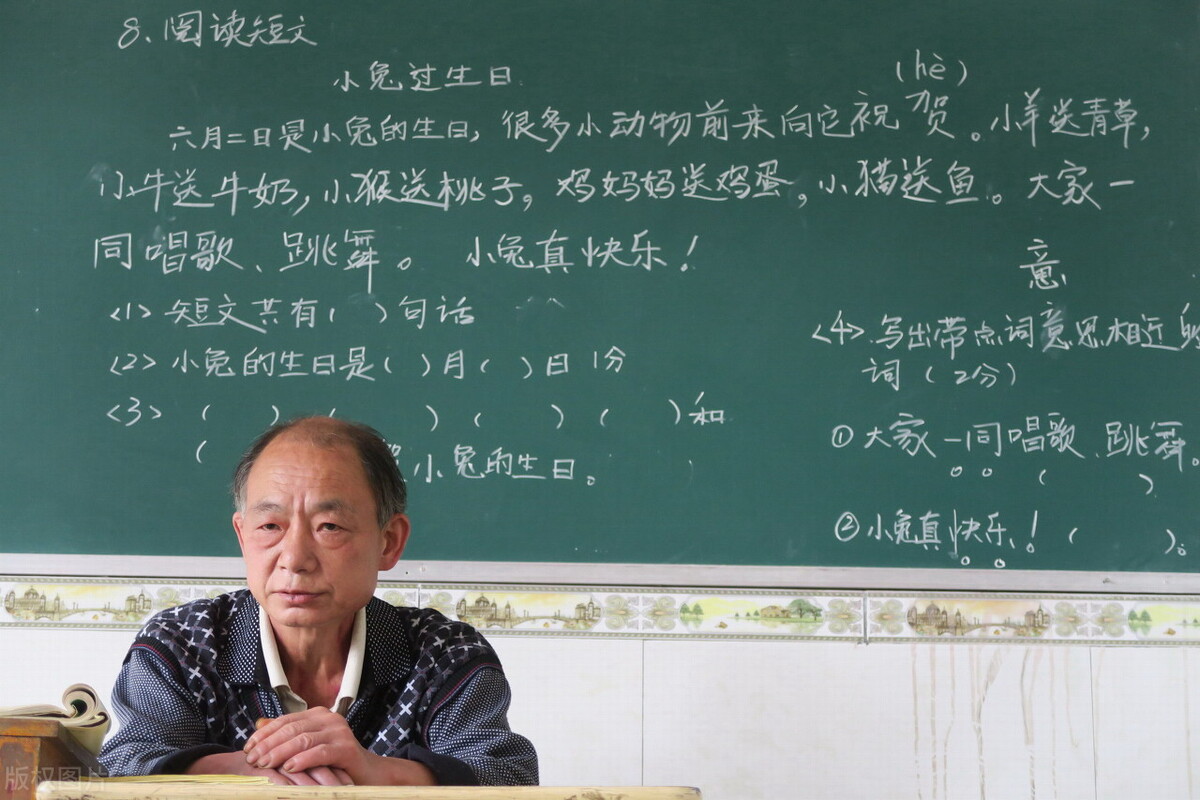 8、阅读短文
小兔过生日
(hè)
六月二日是小兔的生日,很多小动物前来向它祝贺。小羊送青草,
小牛送牛奶,小猴送桃子。鸡妈妈送鸡蛋。小猫送鱼。大家一
同唱歌、跳舞。 小兔真快乐!
<1> 短文共有( )句话
<2> 小兔的生日是( )月( )日 1分
<3> ( ) ( ) ( ) ( )和
( 小兔的生日。
意
<4> 写出带点词意思相近的
词(2分)
① 大家一同唱歌、跳舞。
( )
② 小兔真快乐!( )。
版权图片